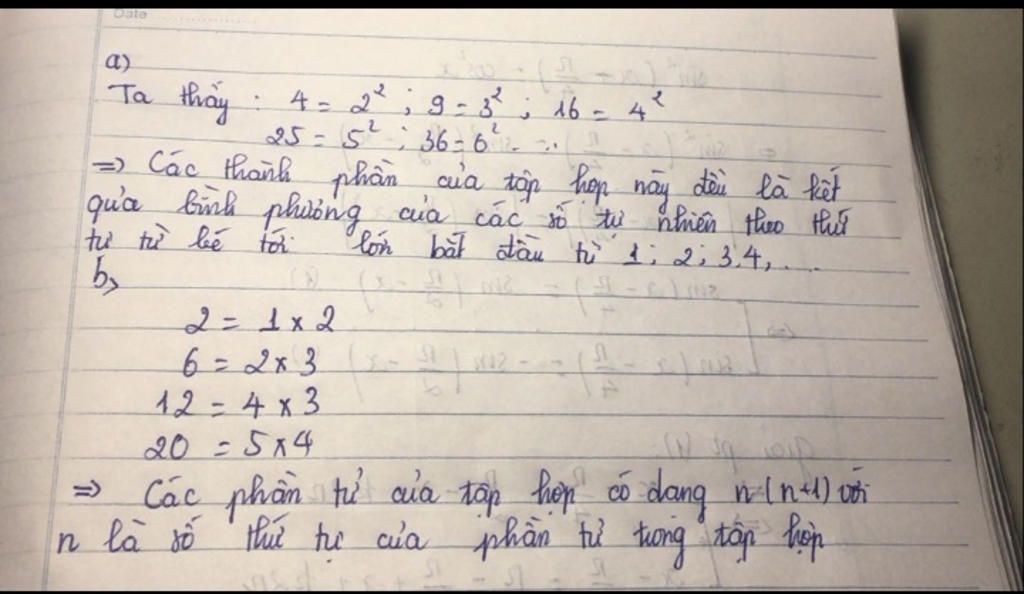 Date
a)
Ta thấy : 4 = 2² ; 9 = 3² ; 16 = 4²
25 = 5² ; 36 = 6² . ...
=> Các thành phần của tập hợp này đều là kết
quả bình phương của các số tự nhiên theo thứ
tự từ bé tới lớn bắt đầu từ 1 ; 2 ; 3.4, ....
b,
2 = 1 x 2
6 = 2 x 3
12 = 4 x 3
20 = 5 x 4
=> Các phần tử của tập hợp có dạng n(n+1) với
n là số thứ tự của phần tử trong tập hợp